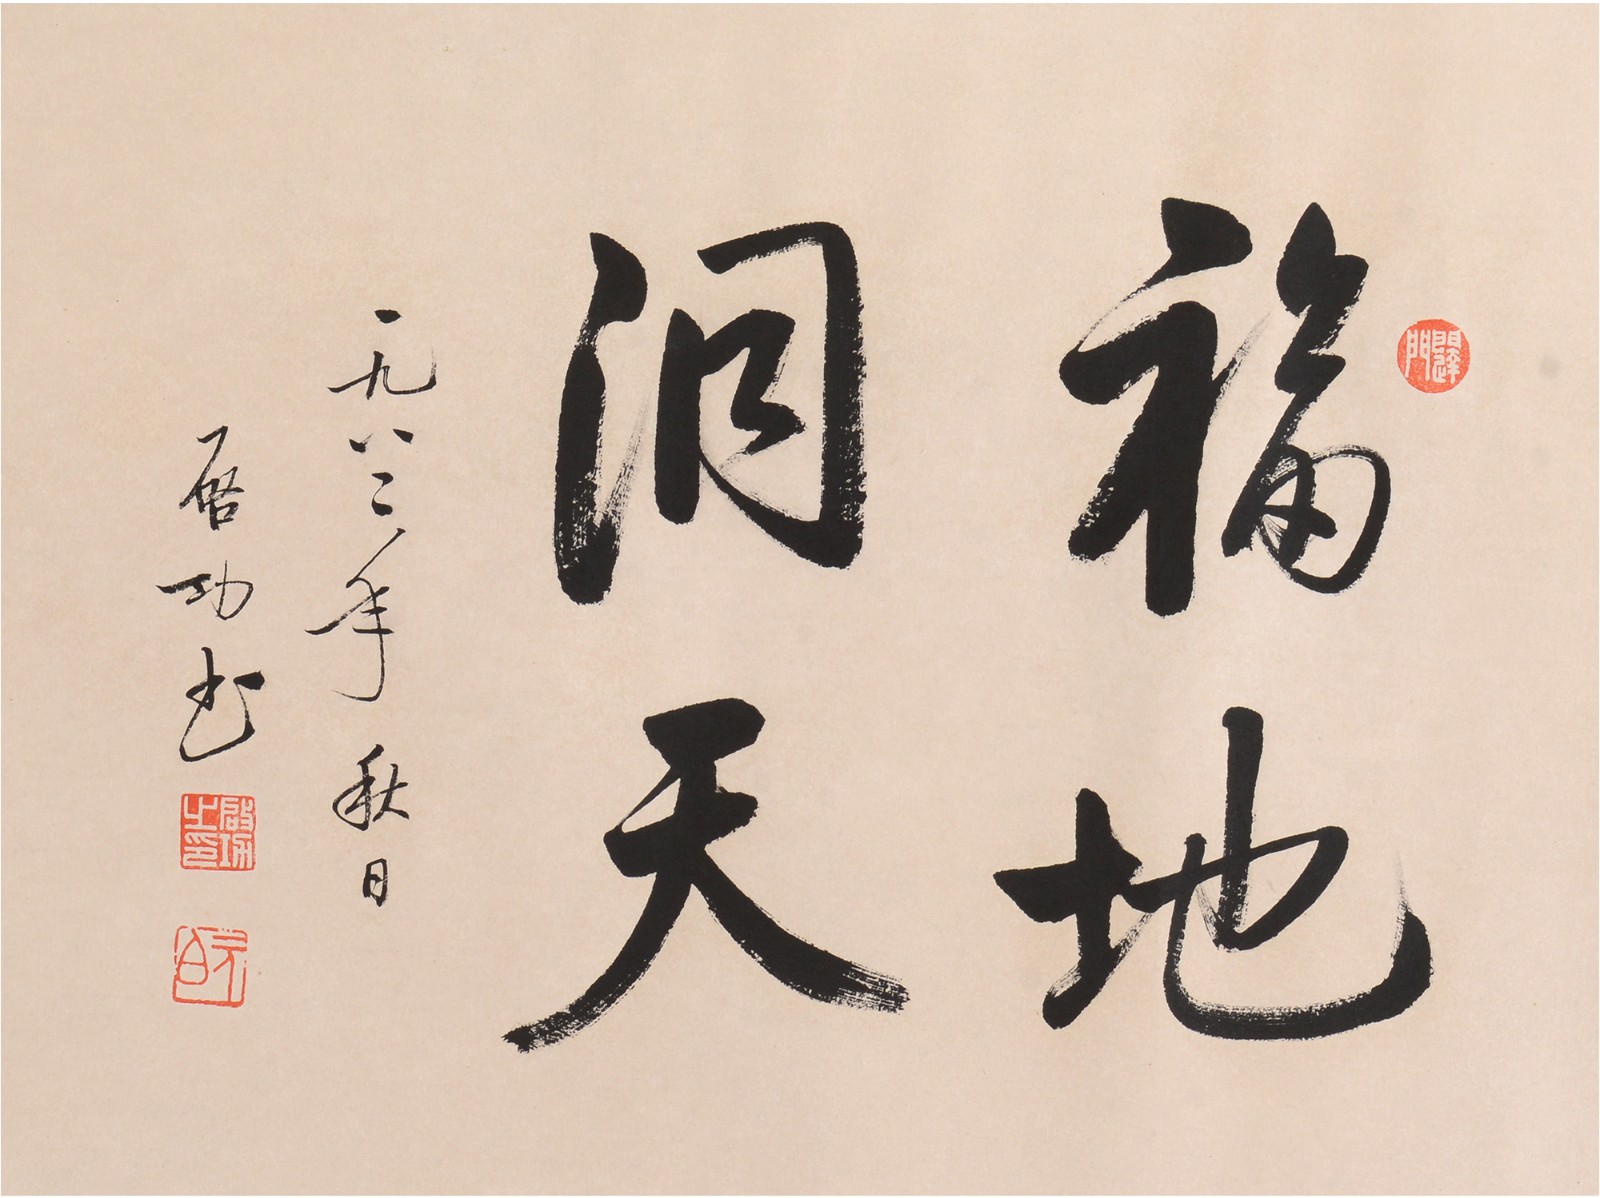 福地
洞天
一九八二年秋日
启功书
啟功之印
元白